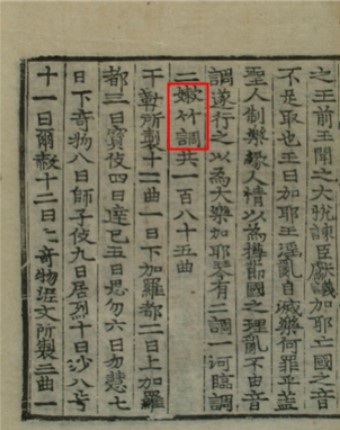 之王前王聞之大悅諫臣獻議加耶亡國之音
不足取也王曰加耶王淫亂自滅樂何罪乎盖
聖人制樂緣人情以爲撙節國之理亂不由音
調遂行之以爲大樂加耶琴有二調一河臨調
二嫰竹調共一百八十五曲
于勒所製十二曲一曰下加羅都二曰上加羅
都三曰寶伎四曰達已五曰思勿六曰勿慧七
曰下奇物八曰師子伎九曰居烈十曰沙八兮
十一曰爾赦十二曰上奇物泥文所製三曲一